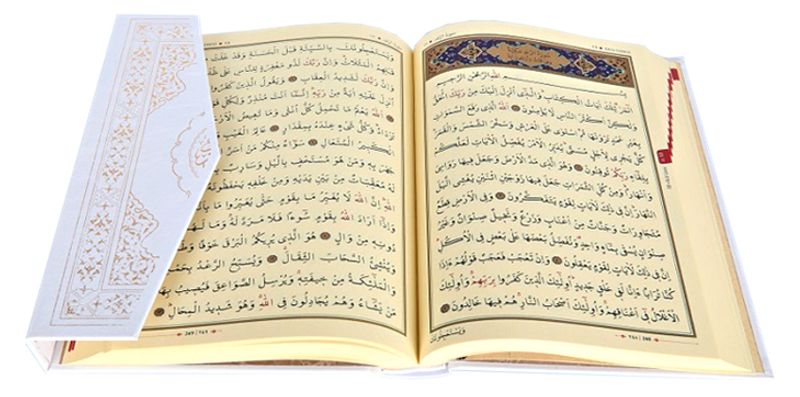 بِسْمِ اللهِ الرَّحْمٰنِ الرَّحِيمِ
الٓمٓرٰ تِلْكَ اٰيَاتُ الْكِتَابِ وَالَّذِي اُنْزِلَ اِلَيْكَ مِنْ رَبِّكَ الْحَقُّ
وَلٰكِنَّ اَكْثَرَ النَّاسِ لَا يُؤْمِنُونَ اَللهُ الَّذِي رَفَعَ السَّمٰوَاتِ
بِغَيْرِ عَمَدٍ تَرَوْنَهَا ثُمَّ اسْتَوٰى عَلَى الْعَرْشِ وَسَخَّرَ الشَّمْسَ وَالْقَمَرَ
كُلٌّ يَجْرِي لِاَجَلٍ مُسَمًّى يُدَبِّرُ الْاَمْرَ يُفَصِّلُ الْاٰيَاتِ لَعَلَّكُمْ
بِلِقَاءِ رَبِّكُمْ تُوقِنُونَ وَهُوَ الَّذِي مَدَّ الْاَرْضَ وَجَعَلَ فِيهَا رَوَاسِيَ
وَاَنْهَارًا وَمِنْ كُلِّ الثَّمَرَاتِ جَعَلَ فِيهَا زَوْجَيْنِ اثْنَيْنِ يُغْشِي الَّيْلَ
النَّهَارَ اِنَّ فِي ذٰلِكَ لَاٰيَاتٍ لِقَوْمٍ يَتَفَكَّرُونَ وَفِي الْاَرْضِ قِطَعٌ
مُتَجَاوِرَاتٌ وَجَنَّاتٌ مِنْ اَعْنَابٍ وَزَرْعٌ وَنَخِيلٌ صِنْوَانٌ وَغَيْرُ
صِنْوَانٍ يُسْقٰى بِمَاءٍ وَاحِدٍ وَنُفَضِّلُ بَعْضَهَا عَلٰى بَعْضٍ فِي الْاُكُلِ
اِنَّ فِي ذٰلِكَ لَاٰيَاتٍ لِقَوْمٍ يَعْقِلُونَ وَاِنْ تَعْجَبْ فَعَجَبٌ قَوْلُهُمْ ءَاِذَا
كُنَّا تُرَابًا ءَاِنَّا لَفِي خَلْقٍ جَدِيدٍ اُولٰئِكَ الَّذِينَ كَفَرُوا بِرَبِّهِمْ وَاُولٰئِكَ
الْاَغْلَالُ فِي اَعْنَاقِهِمْ وَاُولٰئِكَ اَصْحَابُ النَّارِ هُمْ فِيهَا خَالِدُونَ
وَيَسْتَعْجِلُونَكَ
٢٤٨ | 248
وَيَسْتَعْجِلُونَكَ بِالسَّيِّئَةِ قَبْلَ الْحَسَنَةِ وَقَدْ خَلَتْ
الْمَثُلَاتُ وَاِنَّ رَبَّكَ لَذُو مَغْفِرَةٍ لِلنَّاسِ عَلٰى
وَاِنَّ رَبَّكَ لَشَدِيدُ الْعِقَابِ وَيَقُولُ الَّذِينَ
اُنْزِلَ عَلَيْهِ اٰيَةٌ مِنْ رَبِّهِ اِنَّمَا اَنْتَ مُنْذِرٌ وَلِكُلِّ
اَللهُ يَعْلَمُ مَا تَحْمِلُ كُلُّ اُنْثٰى وَمَا تَغِيضُ الْاَرْحَامُ
تَزْدَادُ وَكُلُّ شَيْءٍ عِنْدَهُ بِمِقْدَارٍ عَالِمُ الْغَيْبِ
الْكَبِيرُ الْمُتَعَالِ سَوَاءٌ مِنْكُمْ مَنْ اَسَرَّ
جَهَرَ بِهِ وَمَنْ هُوَ مُسْتَخْفٍ بِالَّيْلِ وَسَارِبٌ
لَهُ مُعَقِّبَاتٌ مِنْ بَيْنِ يَدَيْهِ وَمِنْ خَلْفِهِ يَحْفَظُونَهُ
اللهِ اِنَّ اللهَ لَا يُغَيِّرُ مَا بِقَوْمٍ حَتّٰى يُغَيِّرُوا مَا
وَاِذَا اَرَادَ اللهُ بِقَوْمٍ سُوءًا فَلَا مَرَدَّ لَهُ وَمَا لَهُمْ
دُونِهِ مِنْ وَالٍ هُوَ الَّذِي يُرِيكُمُ الْبَرْقَ خَوْفًا
وَيُنْشِئُ السَّحَابَ الثِّقَالَ وَيُسَبِّحُ الرَّعْدُ بِحَمْدِهِ
وَالْمَلٰئِكَةُ مِنْ خِيفَتِهِ وَيُرْسِلُ الصَّوَاعِقَ فَيُصِيبُ بِهَا
مَنْ يَشَاءُ وَهُمْ يُجَادِلُونَ فِي اللهِ وَهُوَ شَدِيدُ الْمِحَالِ
249 | ٢٤٩